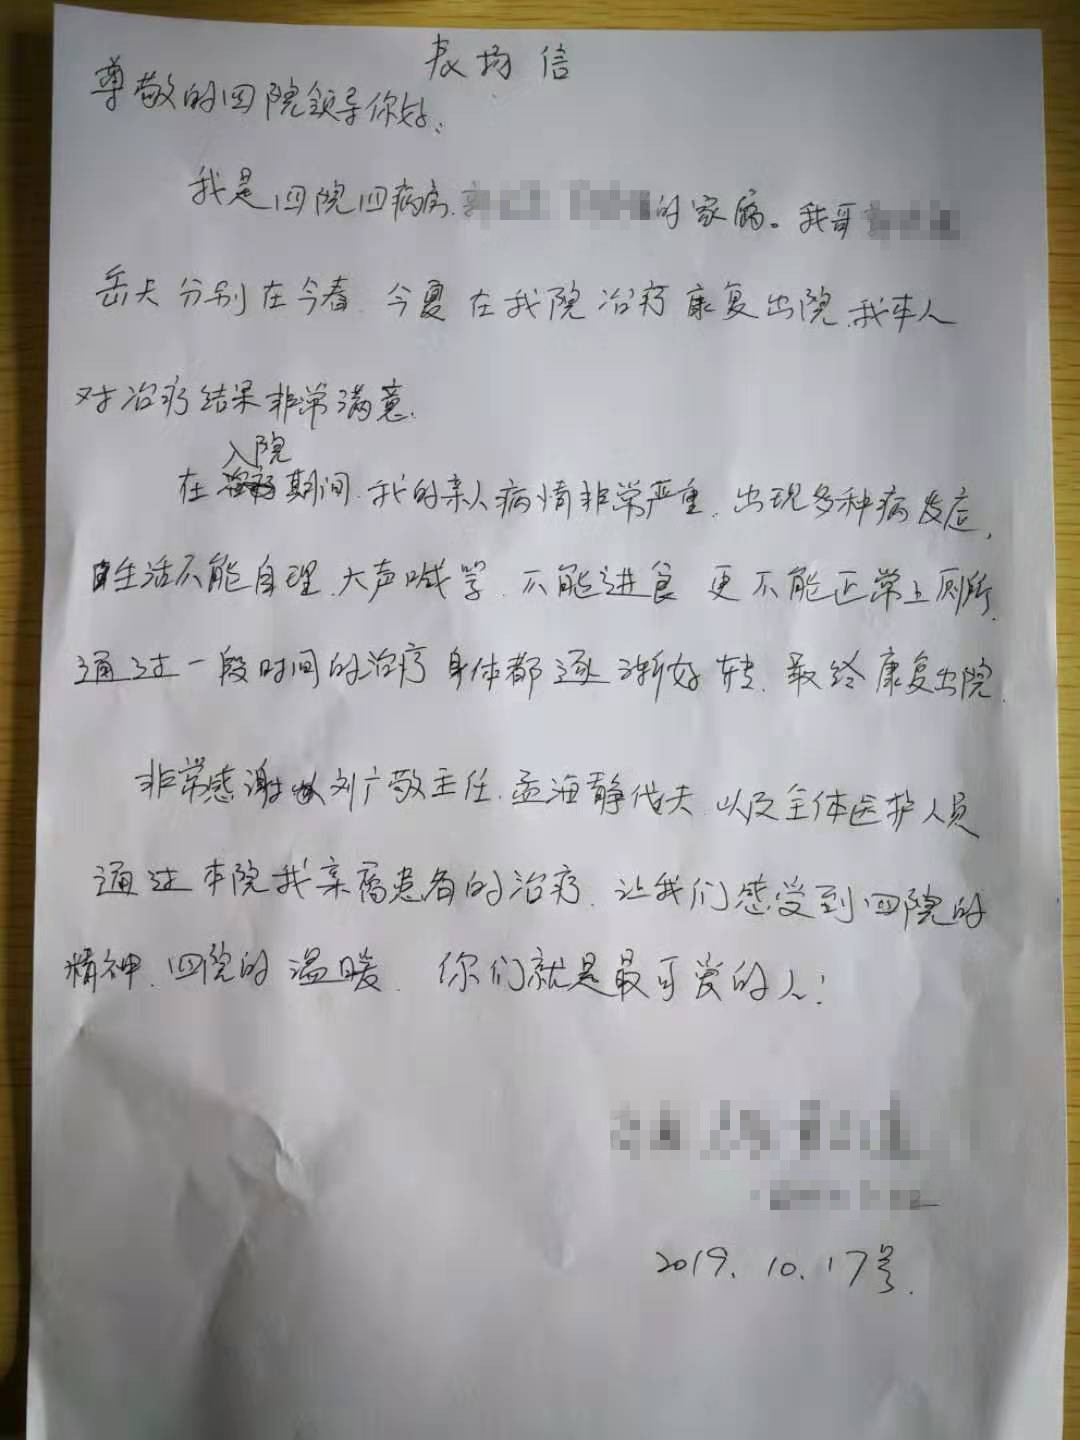 表扬信
尊敬的四院领导你好:
我是四院四病房.的家属。我哥
岳丈分别在今春.今夏在我院治疗康复出院.我本人
对治疗结果非常满意.
入院
在期间.我的亲人病情非常严重.出现多种病发症,
生活不能自理.大声喊哭.不能进食 更不能正常上厕所.
通过一段时间的治疗身体都逐渐好转.最终康复出院.
非常感谢刘广敬主任.孟海静代夫 以及全体医护人员
通过本院我亲属患者的治疗.让我们感受到四院的
精神.四院的温暖. 你们就是最可爱的人!
2019.10.17号.